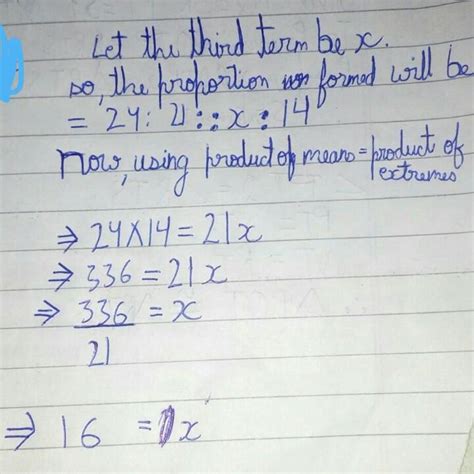 Let the third term be x.
so, the proportion formed will be
= 24 : 21 :: x : 14
Now, using product of means = product of
extremes
⇒ 24×14 = 21x
⇒ 336 = 21x
⇒ 336 = x
21
⇒ 16 = x